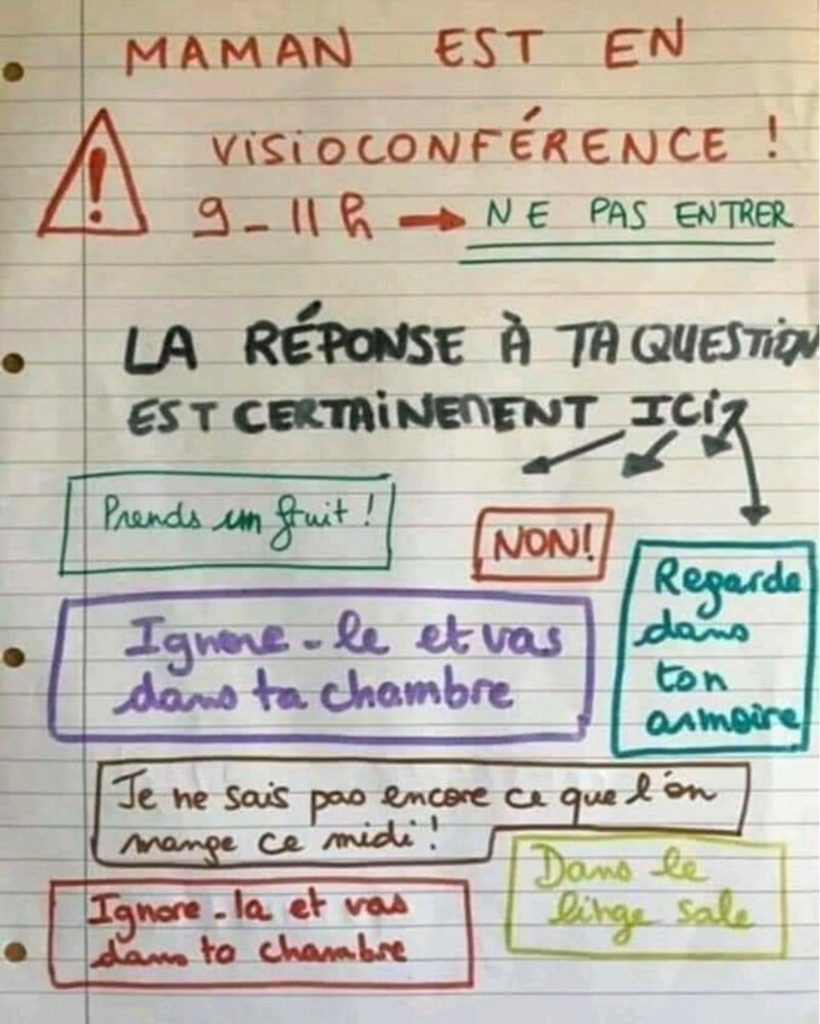 MAMAN EST EN
VISIOCONFÉRENCE !
9-11h → NE PAS ENTRER
LA RÉPONSE À TA QUESTION
EST CERTAINEMENT ICI
Prends un fruit !
NON!
Regarde
dans
ton
armoire
Ignore-le et vas
dans ta chambre
Je ne sais pas encore ce que l'on
mange ce midi !
Dans le
linge sale
Ignore-la et vas
dans ta chambre